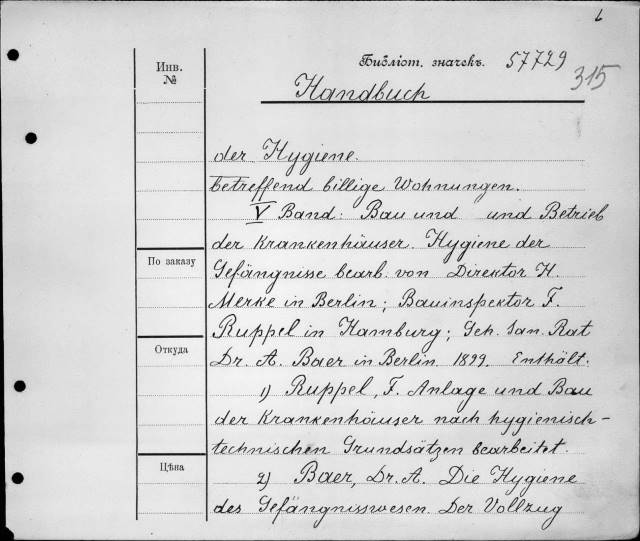 Инв.
№
Библіот. значекъ. 57729
315
Handbuch
der Hygiene.
betreffend billige Wohnungen.
V Band: Bau und und Betrieb
der Krankenhäuser. Hygiene der
По заказу
Gefängnisse bearb. von Direktor H.
Merke in Berlin; Bauinspektor F.
Ruppel in Hamburg; Geh. San. Rat
Откуда
Dr. A. Baer in Berlin 1899. Enthält:
1) Ruppel, F. Anlage und Bau
der Krankenhäuser nach hygienisch-
technischen Grundsätzen bearbeitet.
Цѣна
2) Baer, Dr. A. Die Hygiene
des Gefängnisswesen. Der Vollzug